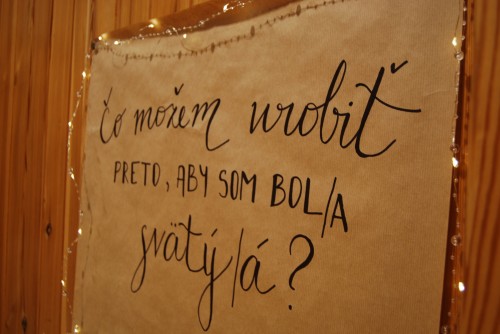 čo možem urobiť
PRETO, ABY SOM BOL/A
svätý/á?